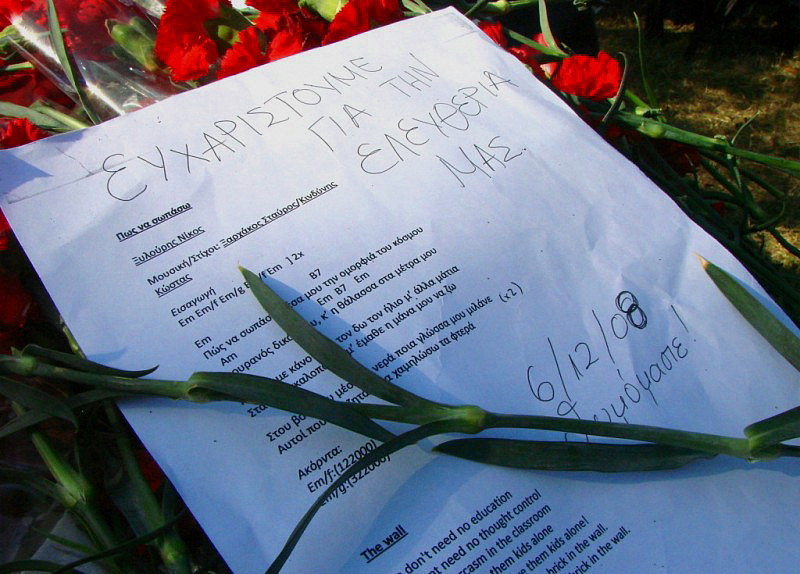 ΕΥΧΑΡΙΣΤΟΥΜΕ
ΓΙΑ ΤΗΝ
ΕΛΕΥΘΕΡΙΑ
ΜΑΣ.
Πως να σωπάσω
Ξυλούρης Νίκος
Μουσική/Στίχοι: Ξαρχάκος Σταύρος/Κινδύνης
Κώστας
Εισαγωγή
Em Em/f Em/g Em/f Em ] 2x
Em B7
Πώς να σωπάσω μέσα μου την ομορφιά του κόσμου
Am Em B7 Em
ουρανός δικός μου, κ' η θάλασσα στα μέτρα μου
κάνουν τον δω τον ήλιο μ' άλλα μάτια
μ' έμαθε η μάνα μου να ζω
Στου νερά ποια γλώσσα μου μιλάνε (x2)
Αυτοί που να χαμηλώσω τα φτερά
6/12/08
Ακόρντα:
Em/f:(122000)
Em/g:(322000)
The wall
don't need no education
need no thought control
sarcasm in the classroom
them kids alone
them kids alone!
brick in the wall.
brick in the wall.